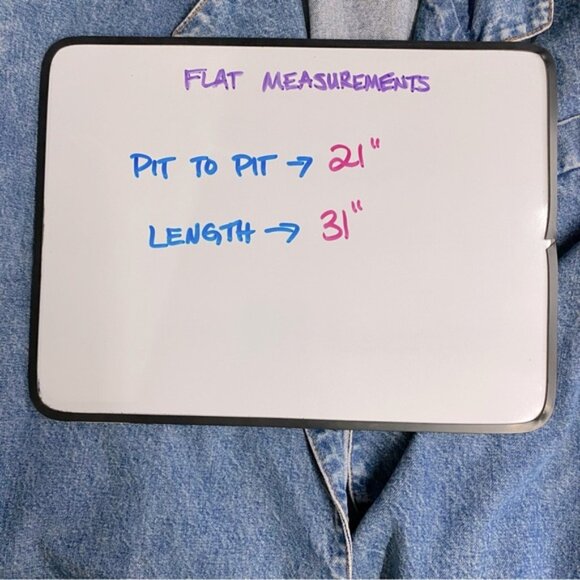 FLAT MEASUREMENTS
PIT TO PIT → 21"
LENGTH → 31"